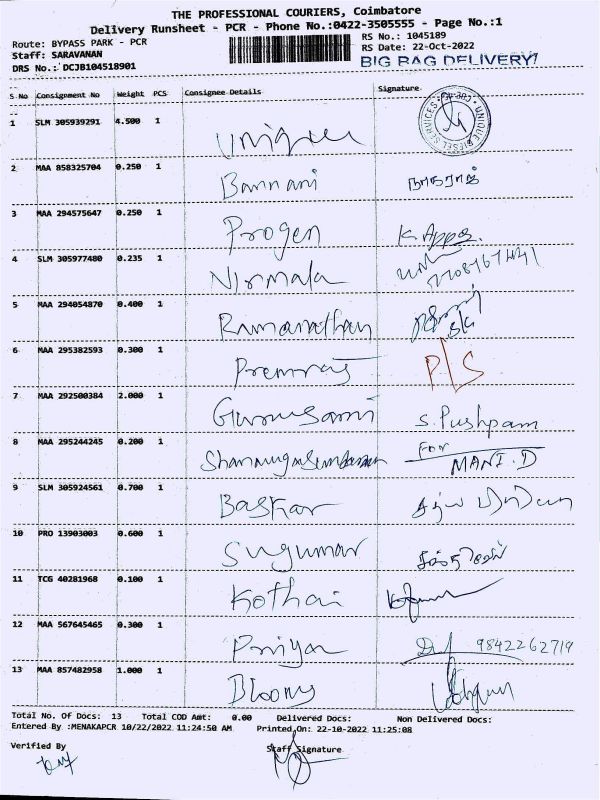 THE PROFESSIONAL COURIERS, Coimbatore
Delivery Runsheet - PCR - Phone No.:0422-3505555 - Page No.:1
Route: BYPASS PARK - PCR
RS No.: 1045189
Staff: SARAVANAN
RS Date: 22-Oct-2022
DRS No.: DCJB104518901
BIG BAG DELIVERY
S No Consignment No Weight PCS Consignee Details Signature
1 SLM 305939291 4.500 1 Unique UNIQUE DIESEL SERVICES
2 MAA 858325704 0.250 1 Bannari நாகராஜ்
3 MAA 294575647 0.250 1 Progen K. Appa
4 SLM 305977480 0.235 1 Nirmala
5 MAA 294054870 0.400 1 Ramanathan
6 MAA 295382593 0.300 1 Premraj P/S
7 MAA 292500384 2.000 1 Gurusami S. Pushpam
8 MAA 295244245 0.200 1 Shanmugasundaram For MANI.D
9 SLM 305924561 0.700 1 Baskar
10 PRO 13903003 0.600 1 Sugumar
11 TCG 40281968 0.100 1 Kothai
12 MAA 567645465 0.300 1 Priya 9842262719
13 MAA 857482958 1.000 1 Blooms
Total No. Of Docs: 13 Total COD Amt: 0.00 Delivered Docs: Non Delivered Docs:
Entered By :MENAKAPCR 10/22/2022 11:24:50 AM Printed On: 22-10-2022 11:25:08
Verified By
Staff Signature